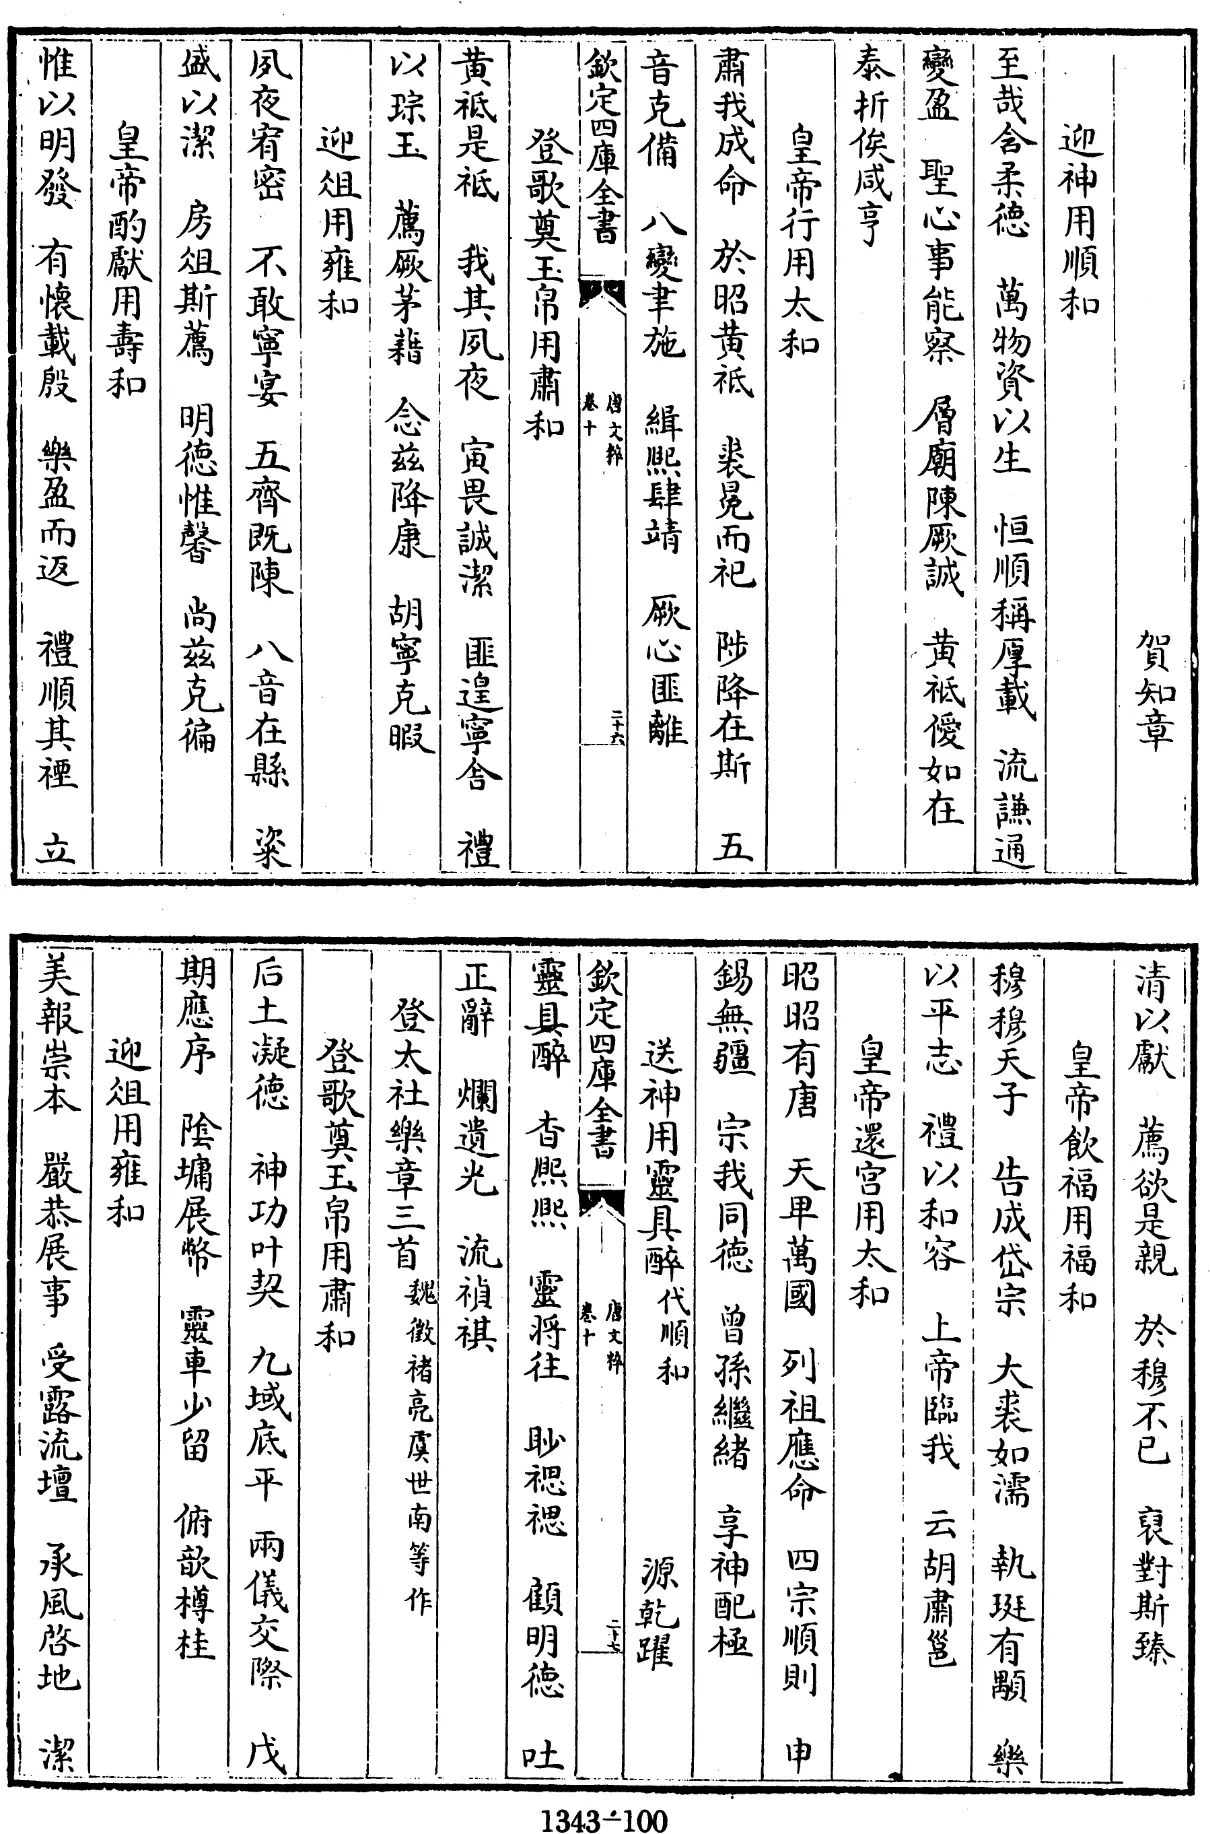 賀知章
迎神用順和
至哉含柔德　萬物資以生　恒順稱厚載　流謙通
變盈　聖心事能察　層廟陳厥誠　黄祗僾如在
泰折俟咸亨
皇帝行用太和
肅我成命　於昭黄祗　裘冕而祀　陟降在斯　五
音克備　八變聿施　緝熙肆靖　厥心匪離
欽定四庫全書
唐文粹
卷十
二十六
登歌奠玉帛用肅和
黄祗是祗　我其夙夜　寅畏誠潔　匪遑寧舍　禮
以琮玉　薦厥茅藉　念兹降康　胡寧克暇
迎俎用雍和
夙夜宥密　不敢寧宴　五齊既陳　八音在縣　粢
盛以潔　房俎斯薦　明德惟馨　尚兹克徧
皇帝酌獻用壽和
惟以明發　有懷載殷　樂盈而返　禮順其禋　立
清以獻　薦欲是親　於穆不已　裒對斯臻
皇帝飲福用福和
穆穆天子　告成岱宗　大裘如濡　執珽有顒　樂
以平志　禮以和容　上帝臨我　云胡肅邕
皇帝還宫用太和
昭昭有唐　天甲萬國　列祖應命　四宗順則　申
錫無疆　宗我同德　曾孫繼緒　享神配極
送神用靈具醉代順和　源乾躍
欽定四庫全書
唐文粹
卷十
二十七
靈具醉　杳熙熙　靈將往　眇禗禗　顧明德　吐
正辭　爛遺光　流禎祺
登太社樂章三首魏徵褚亮虞世南等作
登歌奠玉帛用肅和
后土凝德　神功叶契　九域底平　兩儀交際　戊
期應序　陰墉展幣　靈車少留　俯歆樽桂
迎俎用雍和
美報崇本　嚴恭展事　受露流壇　承風啓地　潔
1343-100